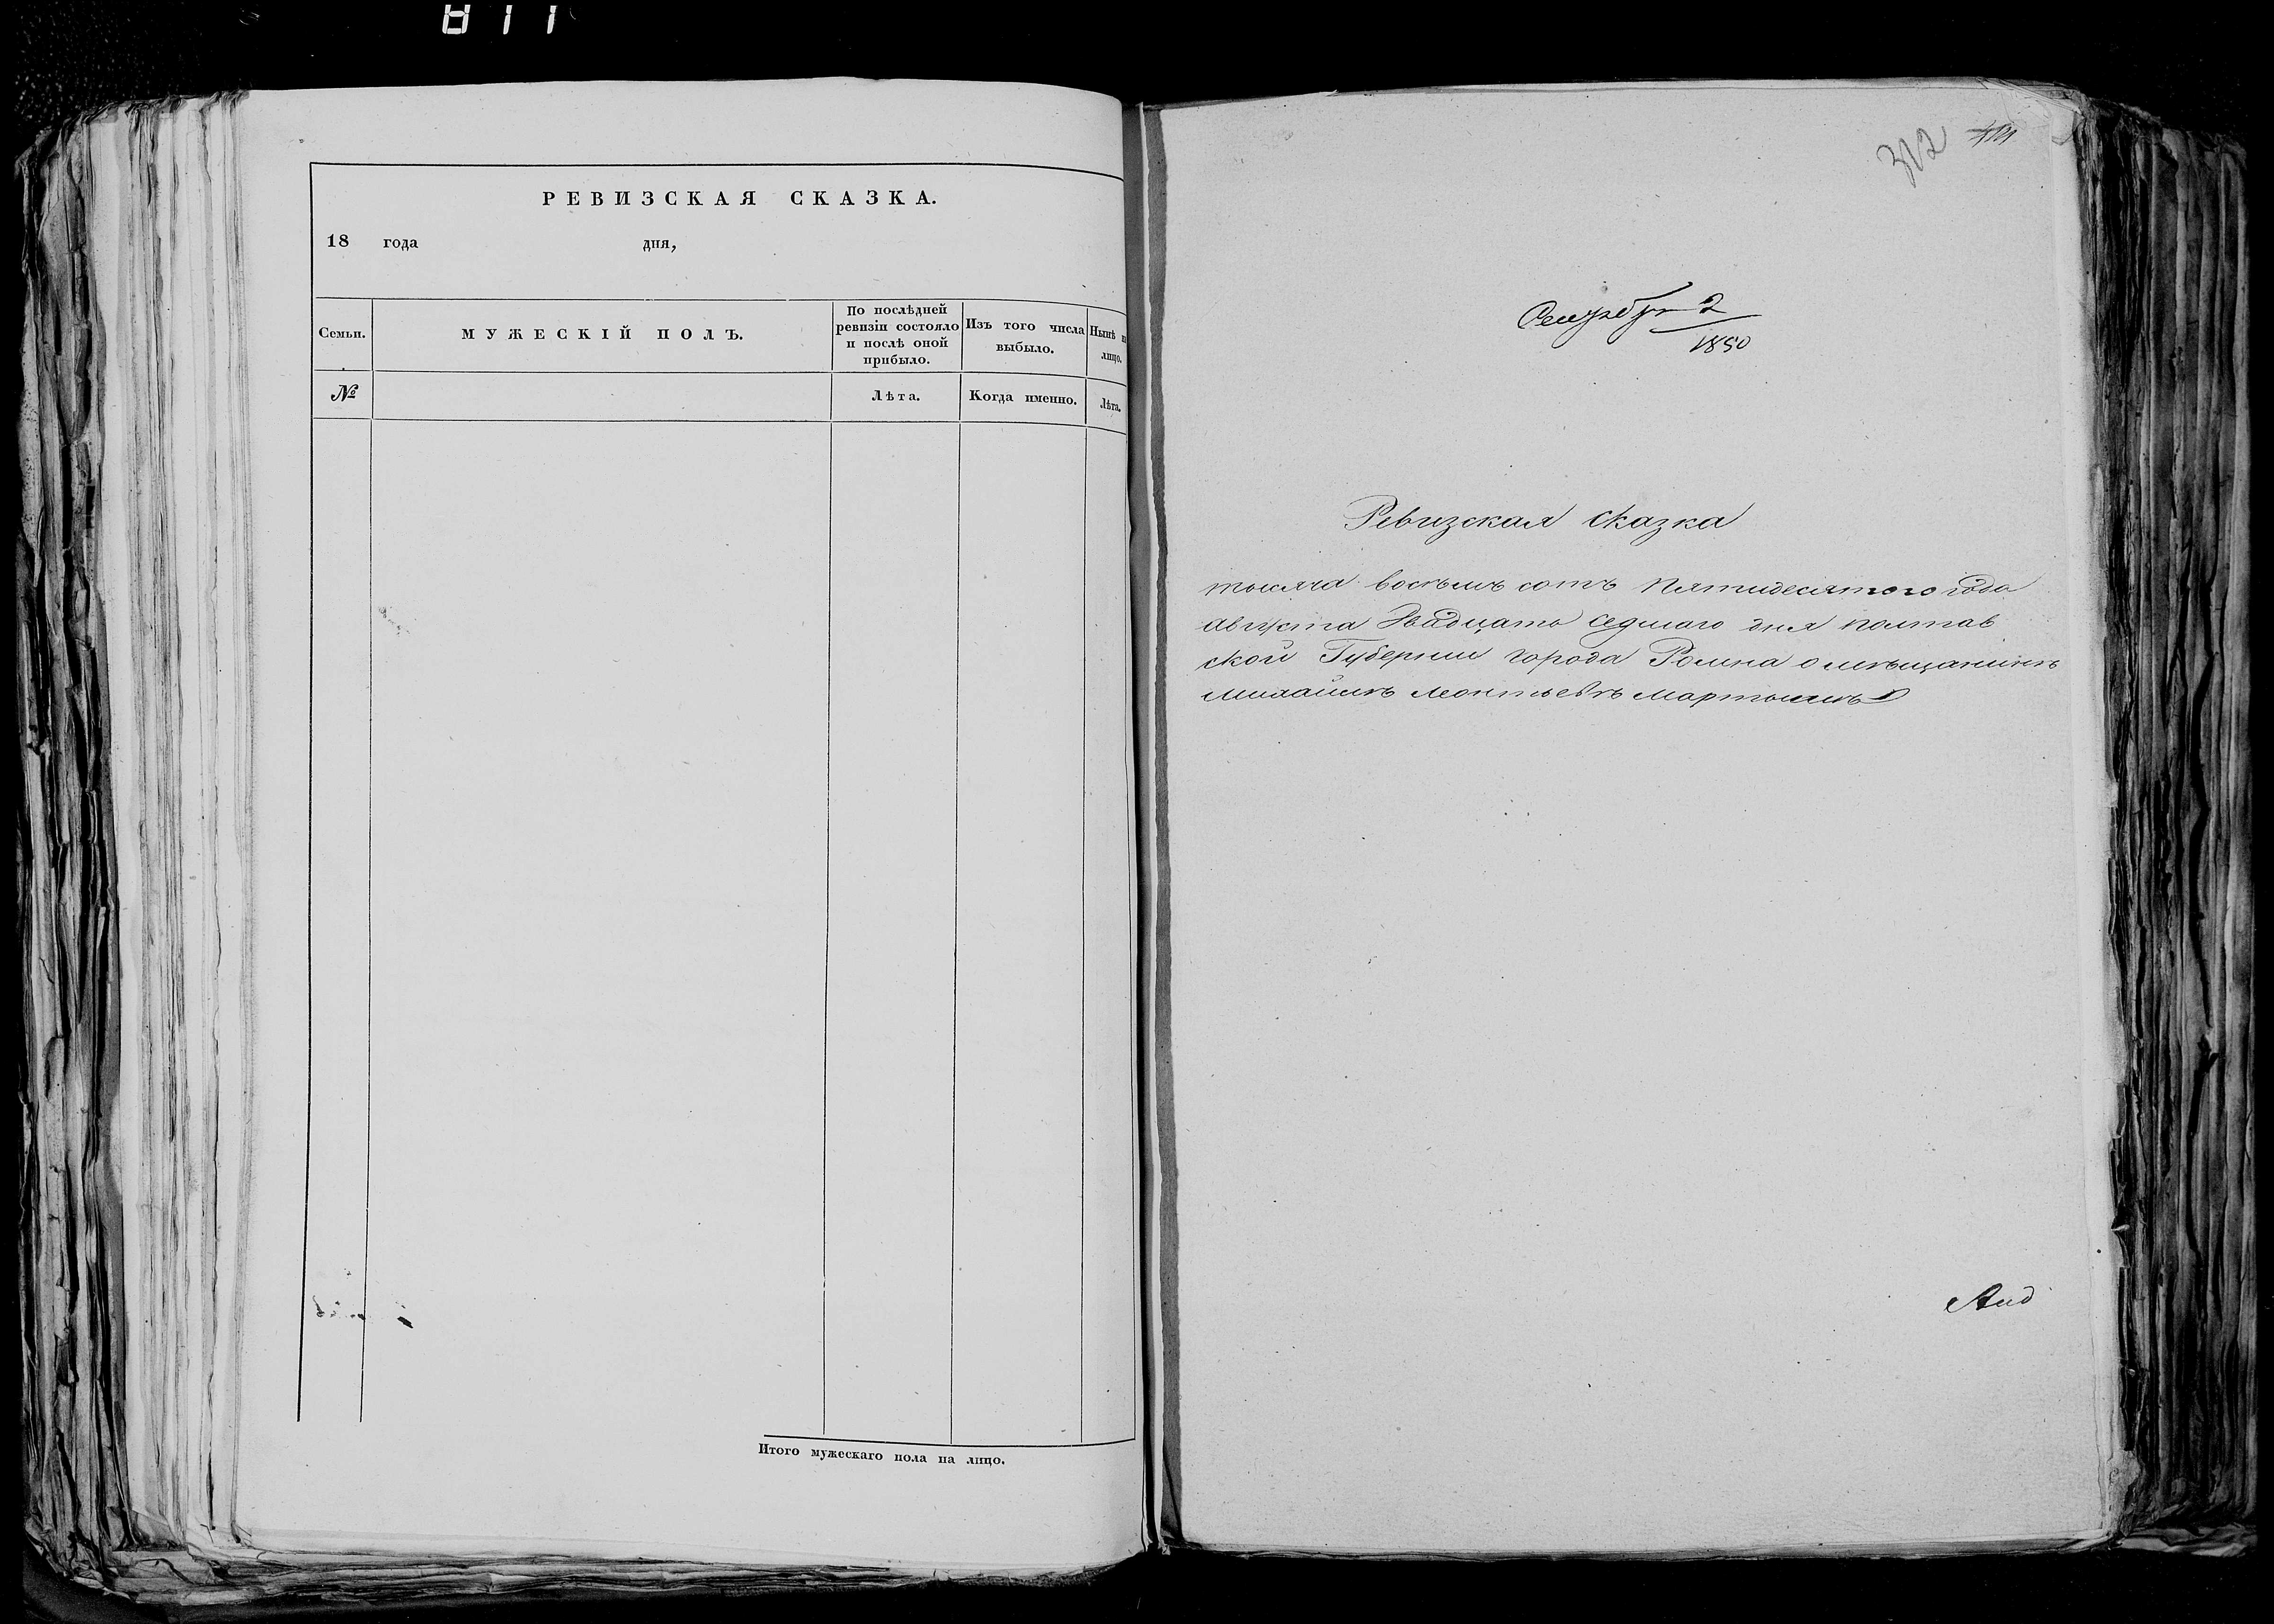 811
РЕВИЗСКАЯ СКАЗКА.
18 года дня,
Семьи.
МУЖЕСКІЙ ПОЛЪ.
По послѣдней
ревизіи состояло
и послѣ оной
прибыло.
Изъ того числа
выбыло.
Нынѣ
лицо.
№
Лѣта.
Когда именно.
Лѣта.
Итого мужескаго пола на лицо.
312
2
1850
Ревизская сказка
тысяча восѣмь сотъ пятидесятого года
августа двадцать седмаго дня полтав
ской Губернии города Ромна о мѣщанинѣ
Михайлѣ Леонтьевѣ